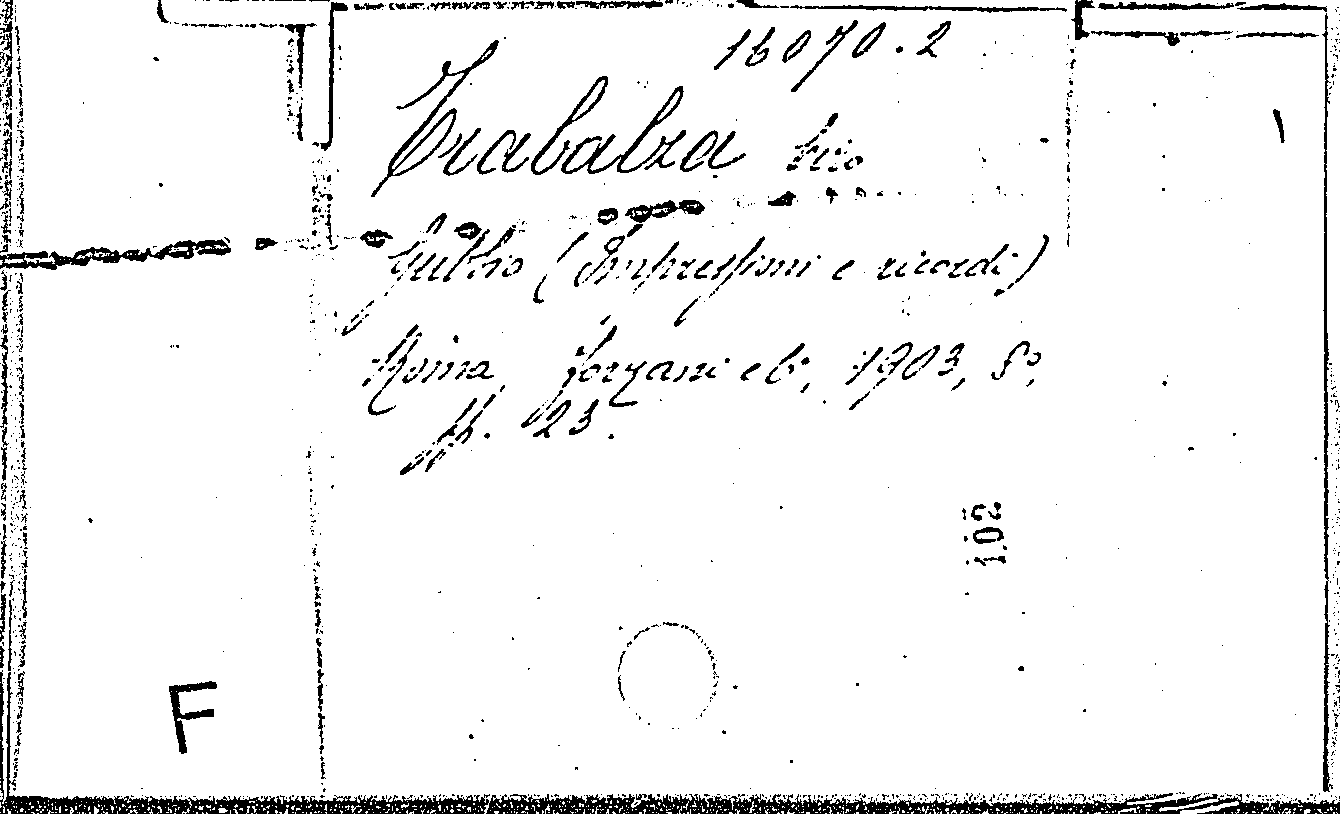 16070.2
Trabalza Ciro
Gubbio (Impressioni e ricordi)
Roma, Forzani e C., 1903, 8°,
pp. 23.
102
F